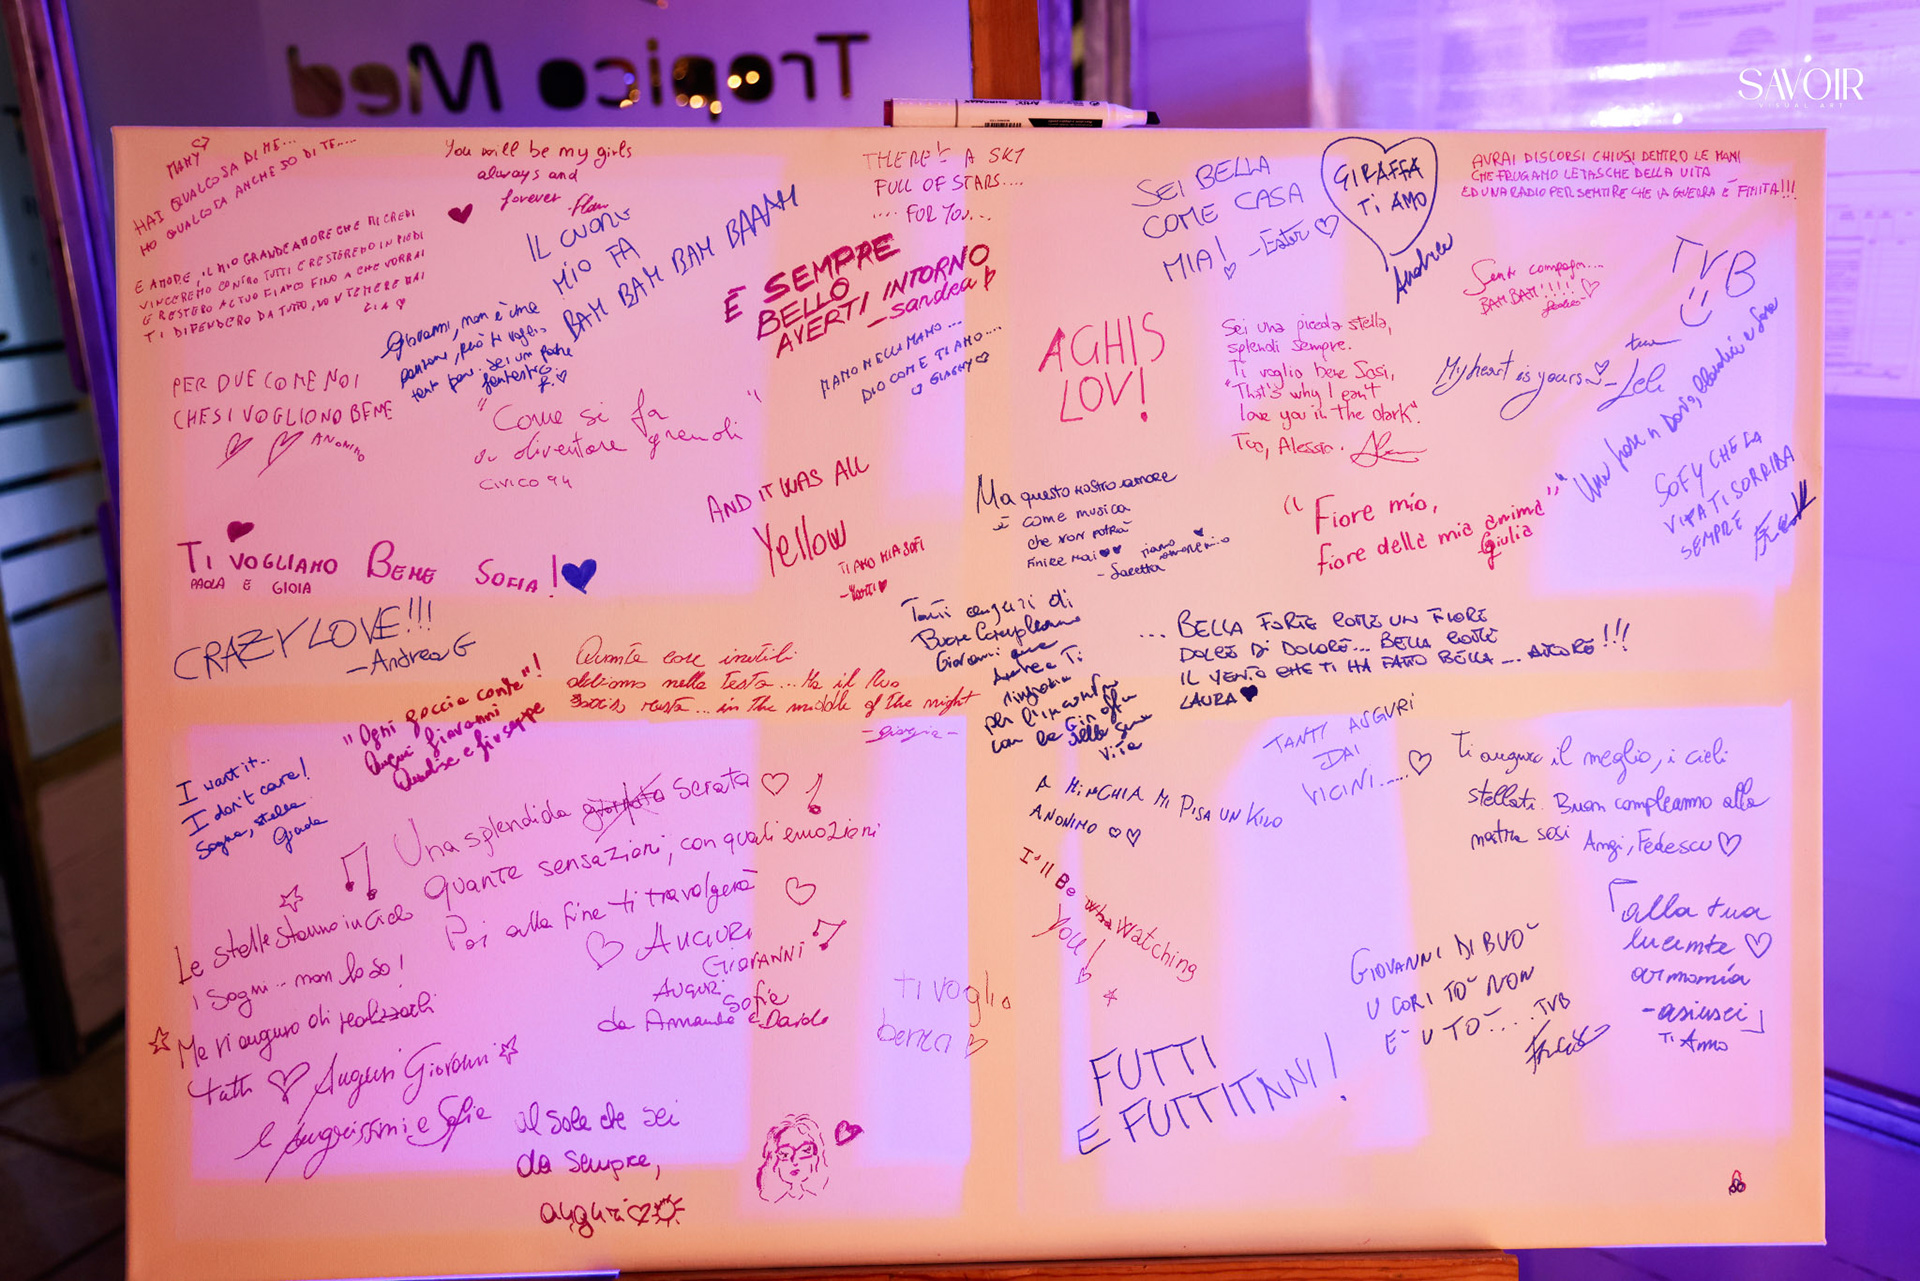 Tropico Med
SAVOIR
VISUAL ART
MAMY
HAI QUALCOSA DI ME...
HO QUALCOSA ANCHE IO DI TE....
E AMORE, IL MIO GRANDE AMORE CHE MI CREDI
VINCEREMO CONTRO TUTTI E RESTEREMO IN PIEDI
E RESTERÒ AL TUO FIANCO FINO A CHE VORRAI
TI DIFENDERÒ DA TUTTO, NON TEMERE MAI
LIA
You will be my girls
always and
forever
IL CUORE
MIO FA
BAM BAM BAM BAM BAAAM
Giovanni, non è una
canzone, però ti voglio
tanto bene. Sei un padre
fantastico
THERE'S A SKY
FULL OF STARS....
.... FOR YOU...
È SEMPRE
BELLO
AVERTI INTORNO
-sandra
MANO NELLA MANO ...
DIO COME TI AMO....
GIAGHY
SEI BELLA
COME CASA
MIA! -Ester
GIRAFFA
TI AMO
Andrea
AVRAI DISCORSI CHIUSI DENTRO LE MANI
CHE FRUGANO LE TASCHE DELLA VITA
ED UNA RADIO PER SENTIRE CHE LA GUERRA È FINITA!!!
Senti compagn...
BAM BAM!!!!
TVB
AGHIS
LOV!
Sei una piccola stella,
splendi sempre.
Ti voglio bene Sosi,
"That's why I can't
love you in the dark".
Tuo, Alessio.
My heart is yours
tua
- Lele
SOFY CHE LA
VITA TI SORRIDA
SEMPRE
PER DUE COME NOI
CHE SI VOGLIONO BENE
ANONIMO
"Come si fa
a diventare grandi"
CIVICO 94
AND IT WAS ALL
Yellow
TI AMO MIA SOFI
Ma questo nostro amore
è come musica
che non potrà
finire mai
tiamo amore mio
- Saretta
"Fiore mio,
fiore della mia anima"
Giulia
TI VOGLIAMO BENE SOFIA!
PAOLA E GIOIA
CRAZY LOVE!!!
-Andrea G
"Ogni goccia conta"!
Auguri Giovanni
Quante cose inutili
abbiamo nella testa...Ma il tuo
bacio resta... in the middle of the night
- Giorgia -
Tanti auguri di
Buon Compleanno
Giovanni
Andrea Ti
ringrazia
per l'incontro
con la Giraffa
della Sua
Vita
... BELLA FORTE COME UN FIORE
DOLCE DI DOLORE... BELLA COME
IL VENTO CHE TI HA FATTO BELLA ... AMORE!!!
LAURA
TANTI AUGURI
DAI
VICINI....
I want it..
I don't care!
Sogna, stella
Giada
Una splendida giornata serata
Quante sensazioni, con quali emozioni
Poi alla fine ti travolgerà
AUGURI
GIOVANNI
A MINCHIA MI PISA UN KILO
ANONIMO
Ti auguro il meglio, i cieli
stellati. Buon compleanno alla
nostra sosi
Angi, Fedescu
Le stelle stanno in cielo
i sogni... non lo so!
Ma vi auguro di realizzarli
tutti
Auguri Giovanni
e augurissimi e Sofie
AUGURI
Sofie
da Armando e Davide
ti voglio
bene
I'll Be Watching
You!
GIOVANNI DI BUO'
U CORI TO' NON
E' U TO'.... TVB
alla tua
lucente
armonia
Ti Amo
FUTTI
E FUTTITNNI!
al sole che sei
da sempre,
auguri